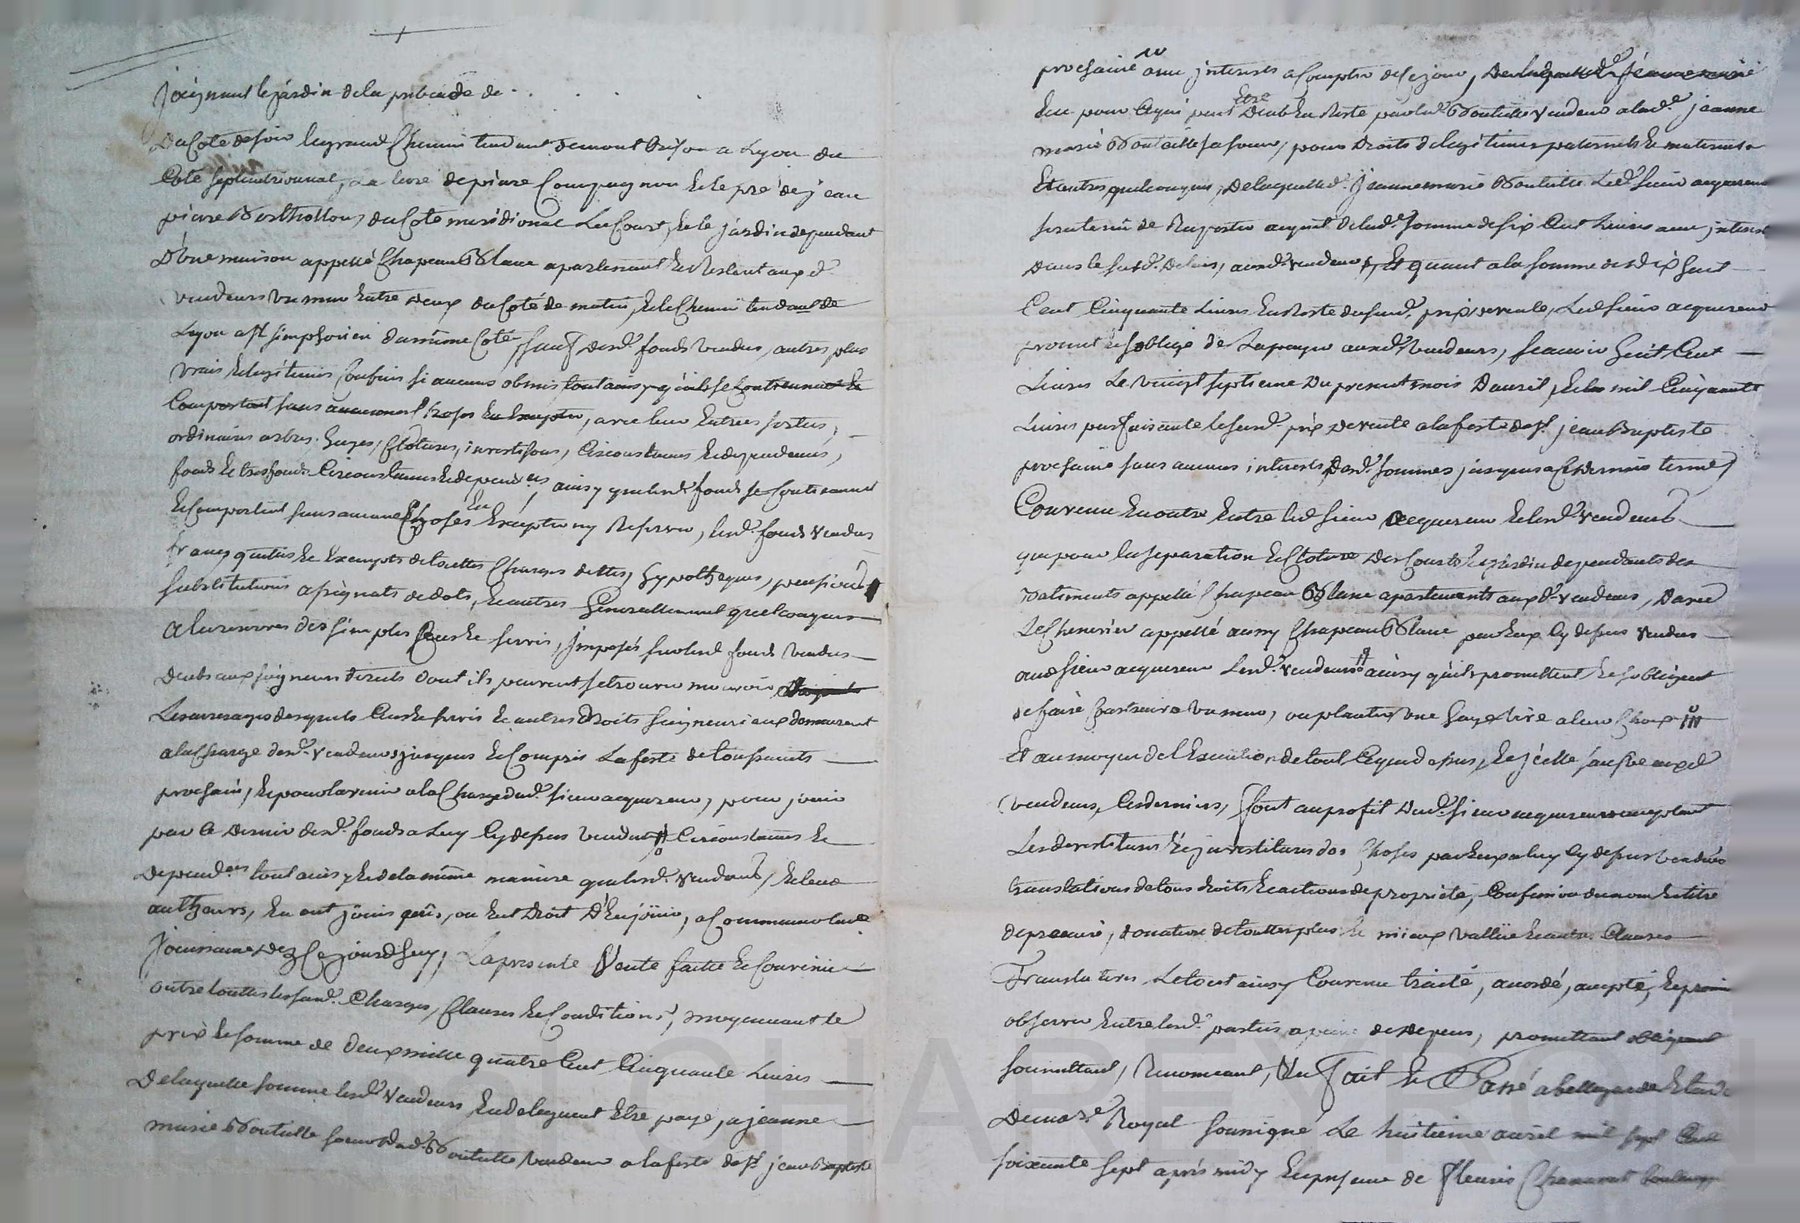 joignant le jardin de la prebende de . . . . .
Du Coté de soir le grand Chemin tendant de montbrison a Lyon du
Coté septentrional, la terre de pierre Compagnon Et le pré de jean
pierre Berthollon, du Coté meridional La Court, Et le jardin dependant
D'une maison appellé Chapeau Blanc apartenant Et Restant aux d.
vendeurs un mur Entre deux du Coté de matin, Et le Chemin tendant de
Lyon a st simphorien du même Coté, sauf desd. fonds vendus, autres plus
vrais Et legitimes Confins si aucuns obmis tout ainsy qu'ils se Contiennent Et
Comportent sans aucunnes Choses En Excepter, avec leurs Entrees sorties,
ordinaires arbres, hayes, Clotures, investisons, Circonstances Et dependances,
fonds Et tresfonds Circonstances Et depend.ces, ainsy que lesd. fonds se Contiennent
Et Comportent sans aucunes Choses En Excepter ny Reserver, lesd. fonds vendus
francs quittes Et Exempts de touttes Charges dettes, hypotheques, pensions
substitutions assignats de dots, Et autres Generallement quelconques
a la reserve des simples Cens Et servis, jmposés sur lesd. fonds vendus
Deubs aux seigneurs directs dont ils peuvent se trouver mouvoir
Les arrerages desquels Cens Et servis Et autres Droits seigneuriaux demeurent
a la Charge desd. vendeurs jusques Et Compris La feste de toussaints
prochain, Et pour l'avenir a la Charge dud. sieur acquereur, pour jouir
par Ce dernier desd. fonds a Luy Cy dessus vendus Circonstances Et
Depend.ces tout ainsy Et de la même maniere que lesd. vendeurs, Et leurs
autheurs, En ont jouis, ou Eut Droit D'En jouir, a Commancer la
jouissance dez Ce jourd'huy, La presente Vente faitte Et Convenue
outre touttes les susd. Charges, Clauses Et Conditions, moyennant le
prix Et somme de deux mille quatre Cent Cinquante Livres
De laquelle somme lesd. vendeurs En deleguent Etre payé, a jeanne
marie Boutaille soeur dud. Boutaille vendeur a la feste de st jean Baptiste
prochaine avec jnterests a Compter de Ce jour,
Eue pour Ce qui peut Etre Deub En Reste par led. Boutaille vendeur a lad.e jeanne
marie Boutaille sa soeur, pour Droits de legitimes paternels Et maternels
Et autres quelconques, De laquelle d. jeanne marie Boutaille Led. sieur acquereur
sera tenu de Raporter acquit de lad.e somme de six Cent Livres avec jnterest
Dans le susd. Delais, auxd. vendeurs, Et quant a la somme de dix huit
Cent Cinquante Livres En Reste dususd. prix de vente, Led. sieur acquereur
promet Et s'oblige de La payer auxd. vendeurs, sçavoir huit Cent
Livres Le vingt septieme Du present mois D'avril, Et les mil Cinquante
Livres parfaisante le susd. prix de vente a la feste de st jean Baptiste
prochaine sans aucuns interests Desd. sommes jusques a Ces derniers termes
Convenu En outre Entre led. sieur acquereur Et lesd. vendeurs
que pour la separation Et Cloture Des Court Et jardin dependants des
Batiments appellé Chapeau Blanc apartenants auxd. vendeurs, D'avec
Le Chenevier appellé aussy Chapeau Blanc par Eux Cy dessus vendus
aud. sieur acquereur Lesd. vendeurs ainsy qu'ils promettent Et s'obligent
de faire Construire un mur, ou planter une haye vive a leur Choix
Et au moyen de l'Execution de tout Ce que dessus, Et jcelle sauve auxd.
vendeurs, Ces derniers, font au profit Dud. sieur acquereur acceptant
Les devestitures Et jnvestitures des Choses par Eux a luy Cy dessus vendues
translations de tous droits Et actions de proprieté, Confession du nom Et titre
de precaire, donation de touttes plus Et mieux vallüe Et autres Clauses
Translatives, Le tout ainsy Convenu traité, acordé, accepté, Et promis
observer Entre lesd. parties a peine de depens, promettant obligeant
soumettant, Renonceant, Fait Et Passé a bellegarde Etude
Du no.re Royal soussigné Le huitieme avril mil sept Cent
soixante sept aprés midy En presence de fleurie
CHAPEYRON